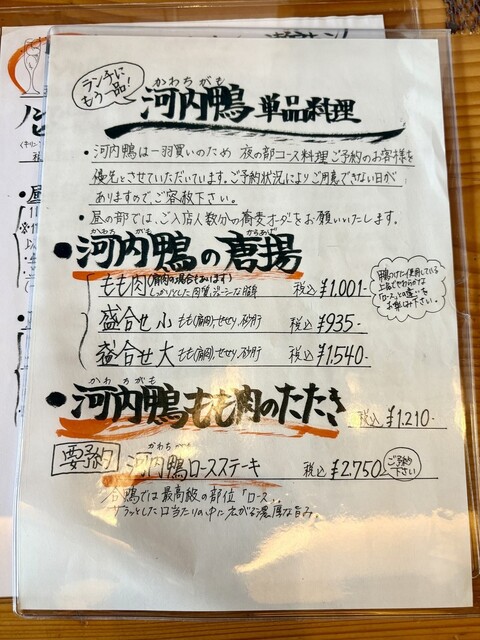 ランチに
もう一品!
かわちがも
河内鴨 単品料理
・河内鴨は一羽買いのため 夜の部コース料理ご予約のお客様を
優先とさせていただいています。ご予約状況によりご用意できない日が
ありますので、ご容赦下さい。
・昼の部では、ご入店人数分の蕎麦オーダをお願いいたします。
かわちがも からあげ
・河内鴨の唐揚
もも肉(胸肉の場合もあります)
しっかりとした肉質、ジューシーな脂身
税込 ¥1,001-
盛合せ 小 もも(胸)、せせり、砂肝 税込 ¥935-
盛合せ 大 もも(胸)、せせり、砂肝 税込 ¥1,540-
鴨つけに使用している
上品でやわらかな
「ロース」との違いを
お楽しみ下さい。
かわちがも
・河内鴨もも肉のたたき 税込 ¥1,210-
要予約
かわちがも
河内鴨ロースステーキ 税込 ¥2,750-
ご予約
下さい
合鴨では最高級の部位「ロース」。
サラッとした口当たりの中に広がる濃厚な旨み。